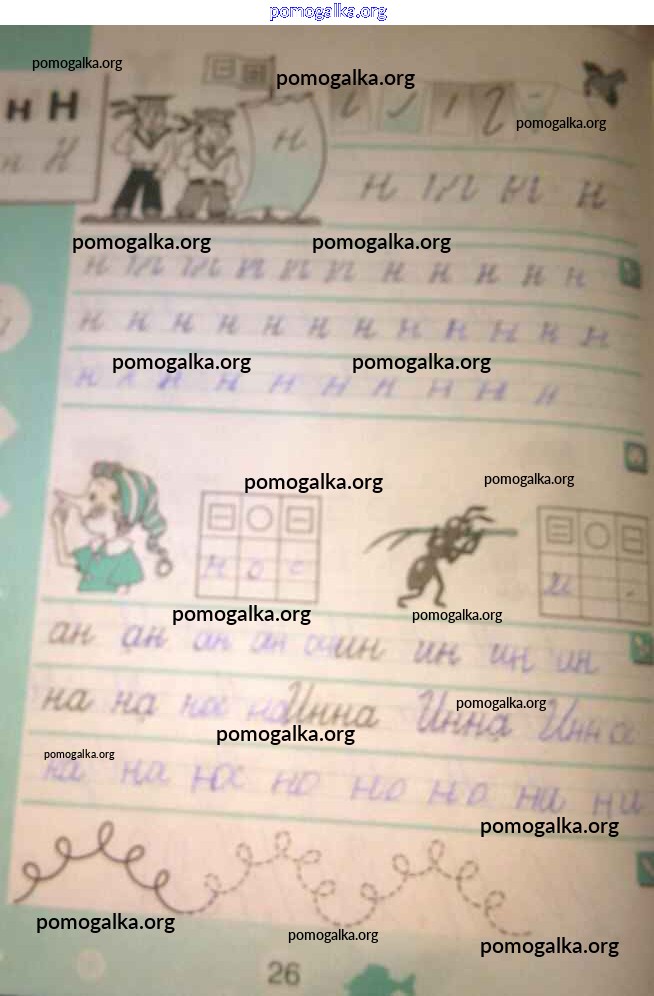 pomogalka.org
pomogalka.org
н Н
pomogalka.org
н
pomogalka.org
н Н
н н н
pomogalka.org pomogalka.org
н н н н н
н н н н н н н н н н н н
pomogalka.org pomogalka.org
н н н н н н н н н
pomogalka.org pomogalka.org
н о с
pomogalka.org pomogalka.org
ан ан ан ан ин ин ин ин
на на на на Инна Инна Инна
pomogalka.org
pomogalka.org
pomogalka.org
на на но но но ни ни
pomogalka.org
pomogalka.org pomogalka.org pomogalka.org
26